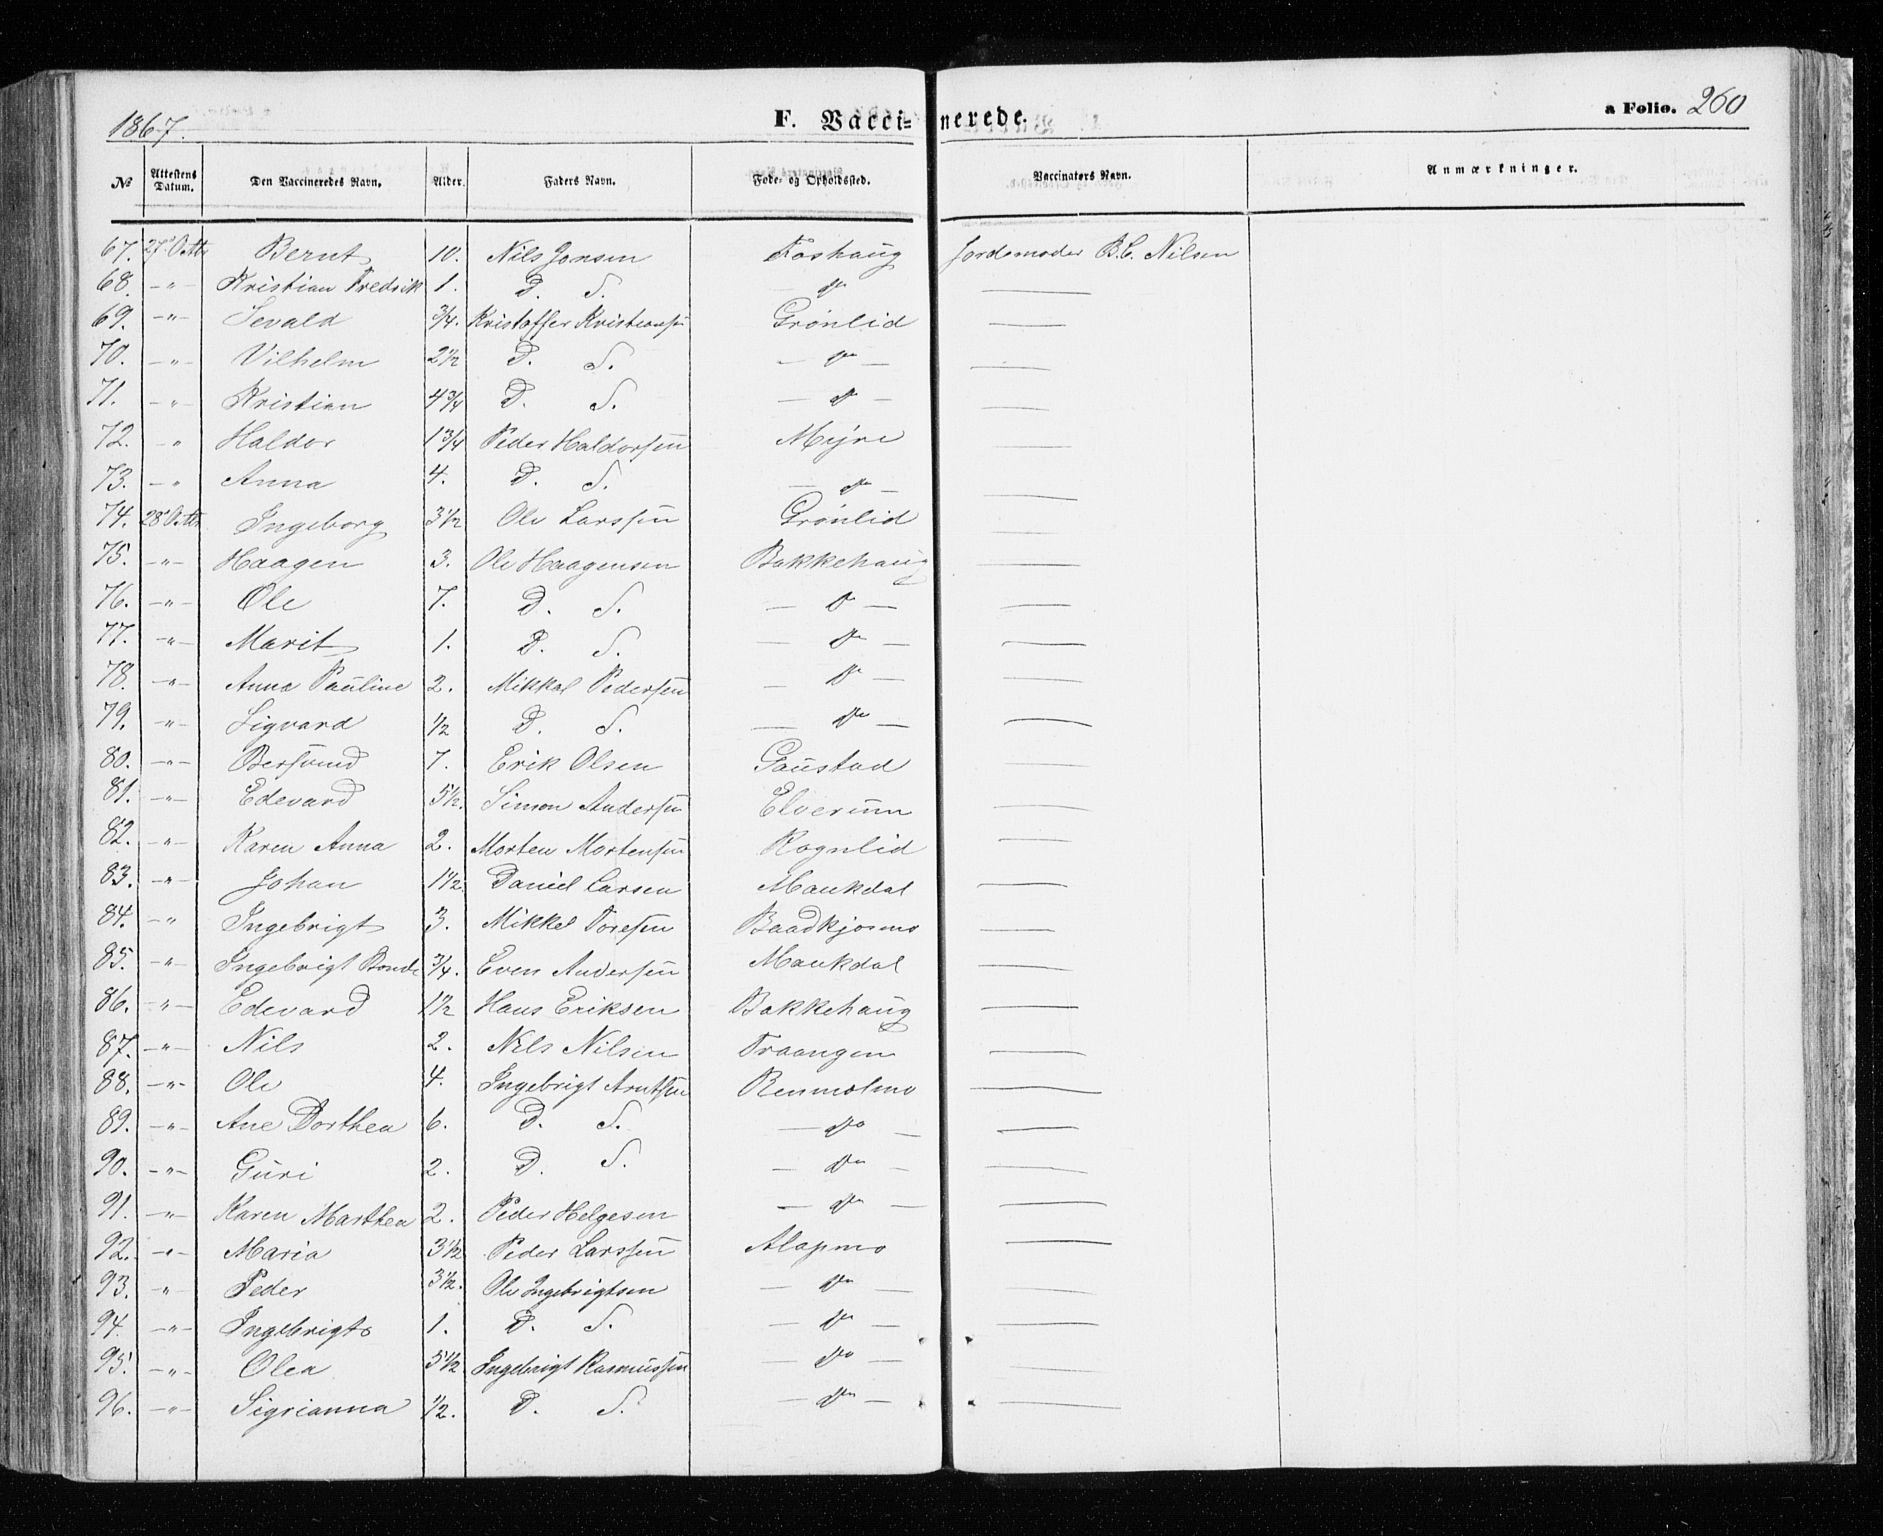 1867. F. Vaccinerede. a Folio. 260
No Attestens Datum. Den Vaccineredes Navn. Alder. Faders Navn. Føde- og Opholdssted. Vaccinators Navn. Anmærkninger.
67. 27de Octbr Bernt 10. Nils Jonsen Foshaug Jordemoder B.C. Nilsen
68. -"- Kristian Fredrik 1. D. S. - do -
69. -"- Sevald 3/4. Kristoffer Kristiansen Grønlid
70. -"- Vilhelm 2 1/2 D. S. - do -
71. -"- Kristian 4 3/4 D. S. - do -
72. -"- Haldor 1 3/4 Peder Haldorsen Myre
73. -"- Anna 4. D. S. - do -
74. 28de Octbr Ingeborg 3 1/2 Ole Larssen Grønlid
75. -"- Haagen 3. Ole Haagensen Bakkehaug
76. -"- Ole 7. D. S. - do -
77. -"- Marit 1. D. S. - do -
78. -"- Anna Pauline 2. Mikkal Pedersen - do -
79. -"- Sigvard 1/2 D. S. - do -
80. -"- Bersvend 7. Erik Olsen Gaustad
81. -"- Edevard 5 1/2. Simon Andersen Elverum
82. -"- Karen Anna 2. Morten Mortensen Rognlid
83. -"- Johan 1 1/2. Daniel Larsen Maukdal
84. -"- Ingebrigt 3. Mikkel Toresen Baadkjosmo
85. -"- Ingebrigt Bonde 3/4. Even Andersen Maukdal
86. -"- Edevard 1 1/2 Hans Eriksen Bakkehaug
87. -"- Nils 2. Nils Nilsen Traangen
88. -"- Ole 4. Ingebrigt Arntsen Renmolmo
89. -"- Ane Dorthea 6. D. S. - do -
90. -"- Guri 2. D. S. - do -
91. -"- Karen Marthea 2. Peder Helgesen - do -
92. -"- Maria 3 1/2 Peder Larssen Alapmo
93. -"- Peder 3 1/2. Ole Ingebrigtsen - do -
94. -"- Ingebrigt 1. D. S. - do -
95. -"- Olea 5 1/2 Ingebrigt Rasmussen - do -
96. -"- Sigrianna 1/2. D. S. - do -